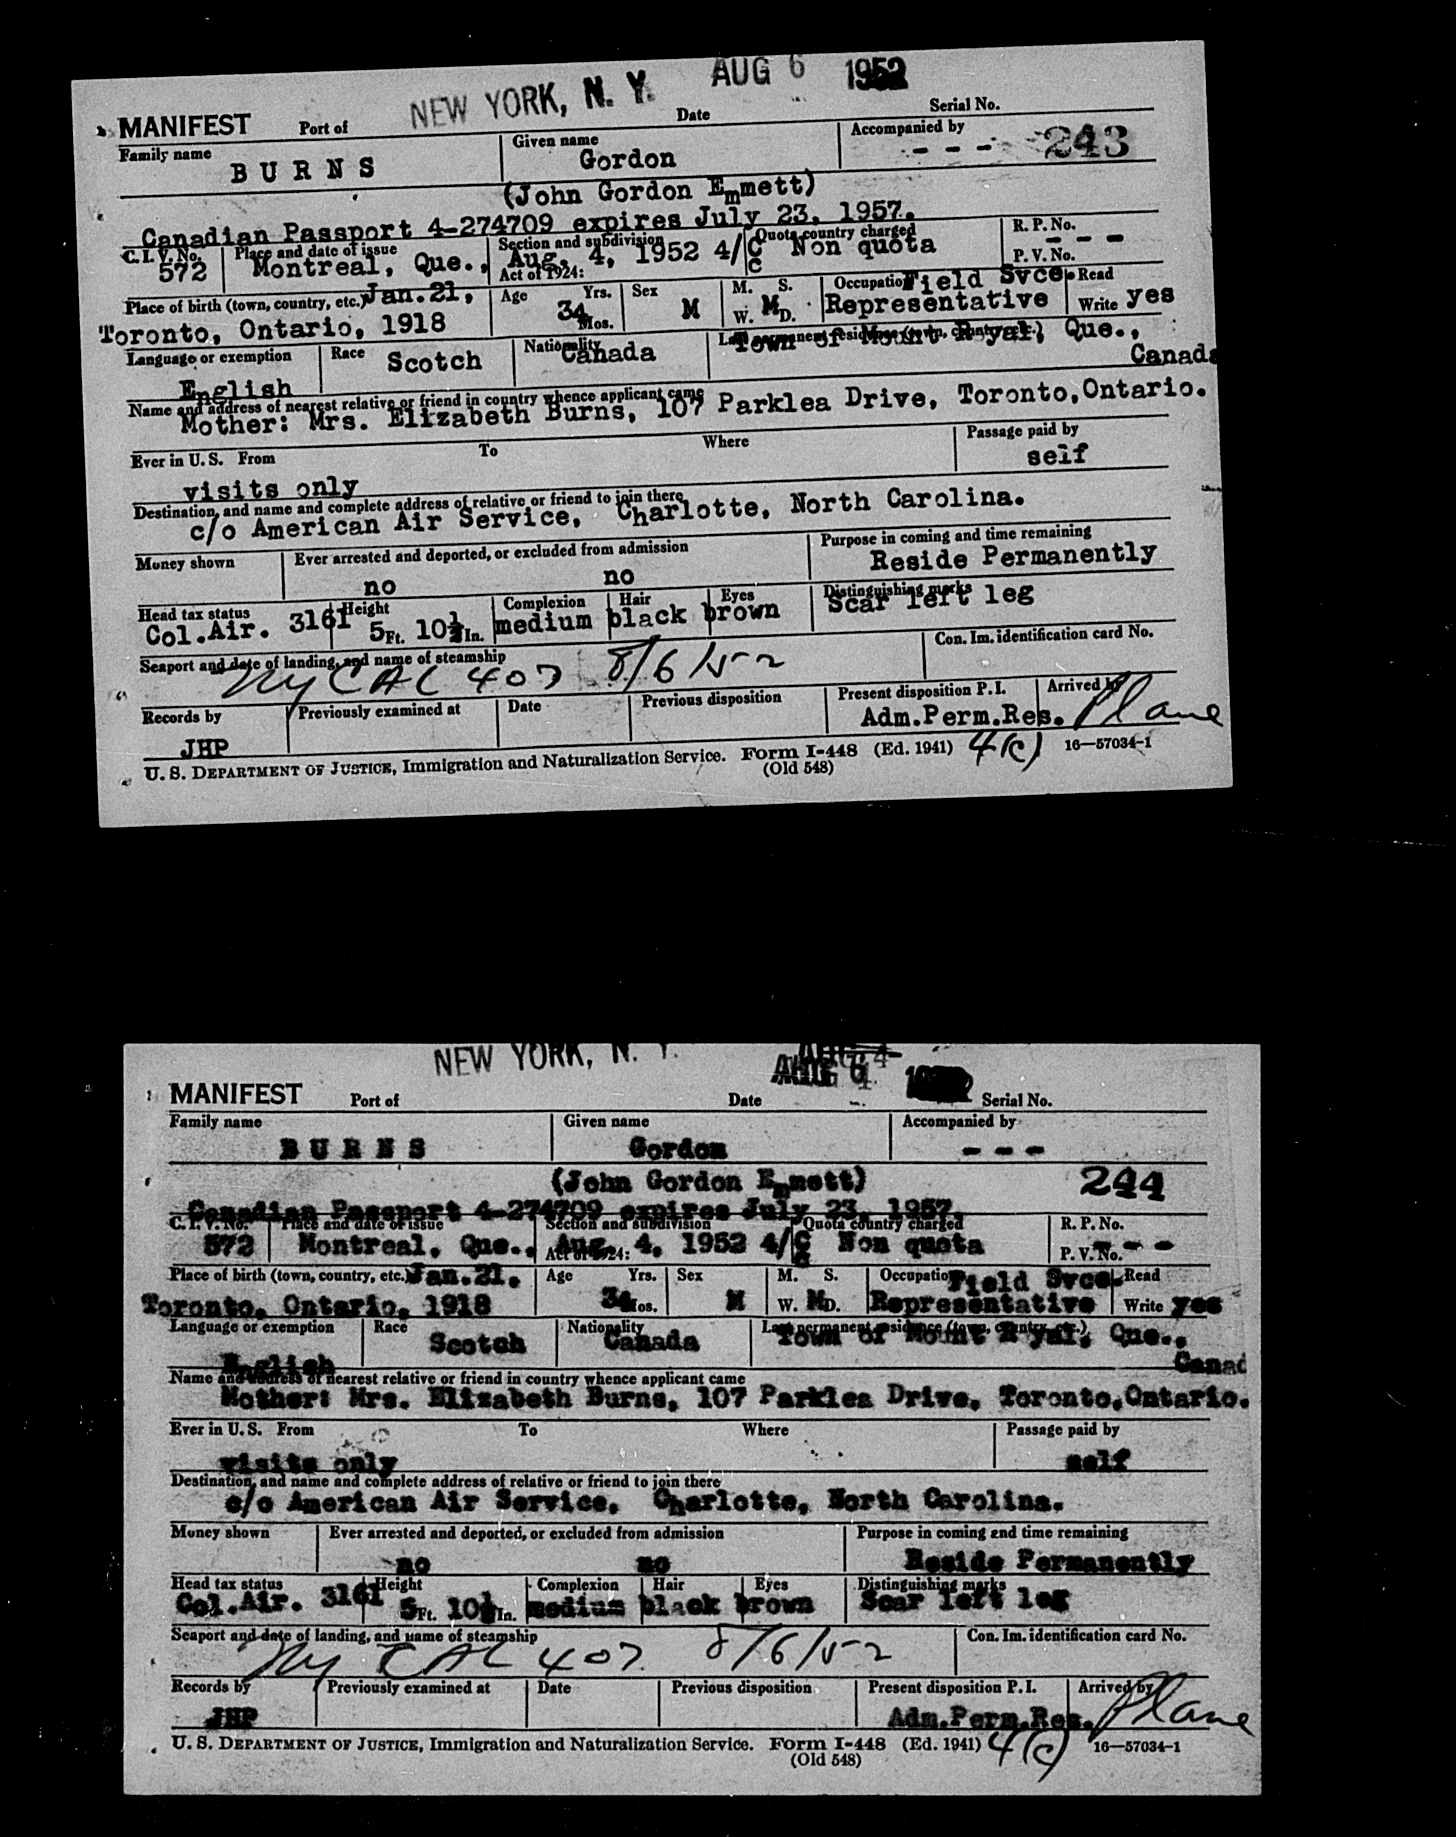 NEW YORK, N. Y. AUG 6 1952
MANIFEST Port of Date Serial No.
Family name Given name Accompanied by
BURNS Gordon - - - 243
(John Gordon Emmett)
Canadian Passport 4-274709 expires July 23, 1957.
C.I.V.No. Place and date of issue Section and subdivision Quota country charged R. P. No.
572 Montreal, Que., Aug. 4, 1952 4/C Non quota - - -
C
Act of 1924: P. V. No.
Place of birth (town, country, etc.) Jan. 21, Age Yrs. Sex M. S. Occupation Field Svce. Read
Toronto, Ontario, 1918 34 Mos. M W. M D. Representative Write yes
Language or exemption Race Nationality Last permanent residence (town, country, etc.)
English Scotch Canada Town of Mount Royal, Que.,
Canada
Name and address of nearest relative or friend in country whence applicant came
Mother: Mrs. Elizabeth Burns, 107 Parklea Drive, Toronto,Ontario.
Ever in U. S. From To Where Passage paid by
visits only self
Destination, and name and complete address of relative or friend to join there
c/o American Air Service, Charlotte, North Carolina.
Money shown Ever arrested and deported, or excluded from admission Purpose in coming and time remaining
no no Reside Permanently
Head tax status Height Complexion Hair Eyes Distinguishing marks
Col.Air. 3161 5 Ft. 10½ In. medium black brown Scar left leg
Seaport and date of landing, and name of steamship Con. Im. identification card No.
NY CAL 407 8/6/52
Records by Previously examined at Date Previous disposition Present disposition P. I. Arrived by
JHP Adm.Perm.Res. Plane
U. S. DEPARTMENT OF JUSTICE, Immigration and Naturalization Service. FORM I-448 (Ed. 1941) 4(c) 16—57034-1
(Old 548)
NEW YORK, N. Y. AUG 6
MANIFEST Port of Date Serial No.
Family name Given name Accompanied by
BURNS Gordon - - -
(John Gordon Emmett) 244
Canadian Passport 4-274709 expires July 23, 1957.
C.I.V.No. Place and date of issue Section and subdivision Quota country charged R. P. No.
572 Montreal, Que., Aug. 4, 1952 4/C Non quota - - -
C
Act of 1924: P. V. No.
Place of birth (town, country, etc.) Jan. 21, Age Yrs. Sex M. S. Occupation Field Svce. Read
Toronto, Ontario, 1918 34 Mos. M W. M D. Representative Write yes
Language or exemption Race Nationality Last permanent residence (town, country, etc.)
English Scotch Canada Town of Mount Royal, Que.,
Canad
Name and address of nearest relative or friend in country whence applicant came
Mother: Mrs. Elizabeth Burns, 107 Parklea Drive, Toronto,Ontario.
Ever in U. S. From To Where Passage paid by
visits only self
Destination, and name and complete address of relative or friend to join there
c/o American Air Service, Charlotte, North Carolina.
Money shown Ever arrested and deported, or excluded from admission Purpose in coming and time remaining
no no Reside Permanently
Head tax status Height Complexion Hair Eyes Distinguishing marks
Col.Air. 3161 5 Ft. 10½ In. medium black brown Scar left leg
Seaport and date of landing, and name of steamship Con. Im. identification card No.
NY CAL 407 8/6/52
Records by Previously examined at Date Previous disposition Present disposition P. I. Arrived by
JHP Adm.Perm.Res. Plane
U. S. DEPARTMENT OF JUSTICE, Immigration and Naturalization Service. FORM I-448 (Ed. 1941) 4(c) 16—57034-1
(Old 548)